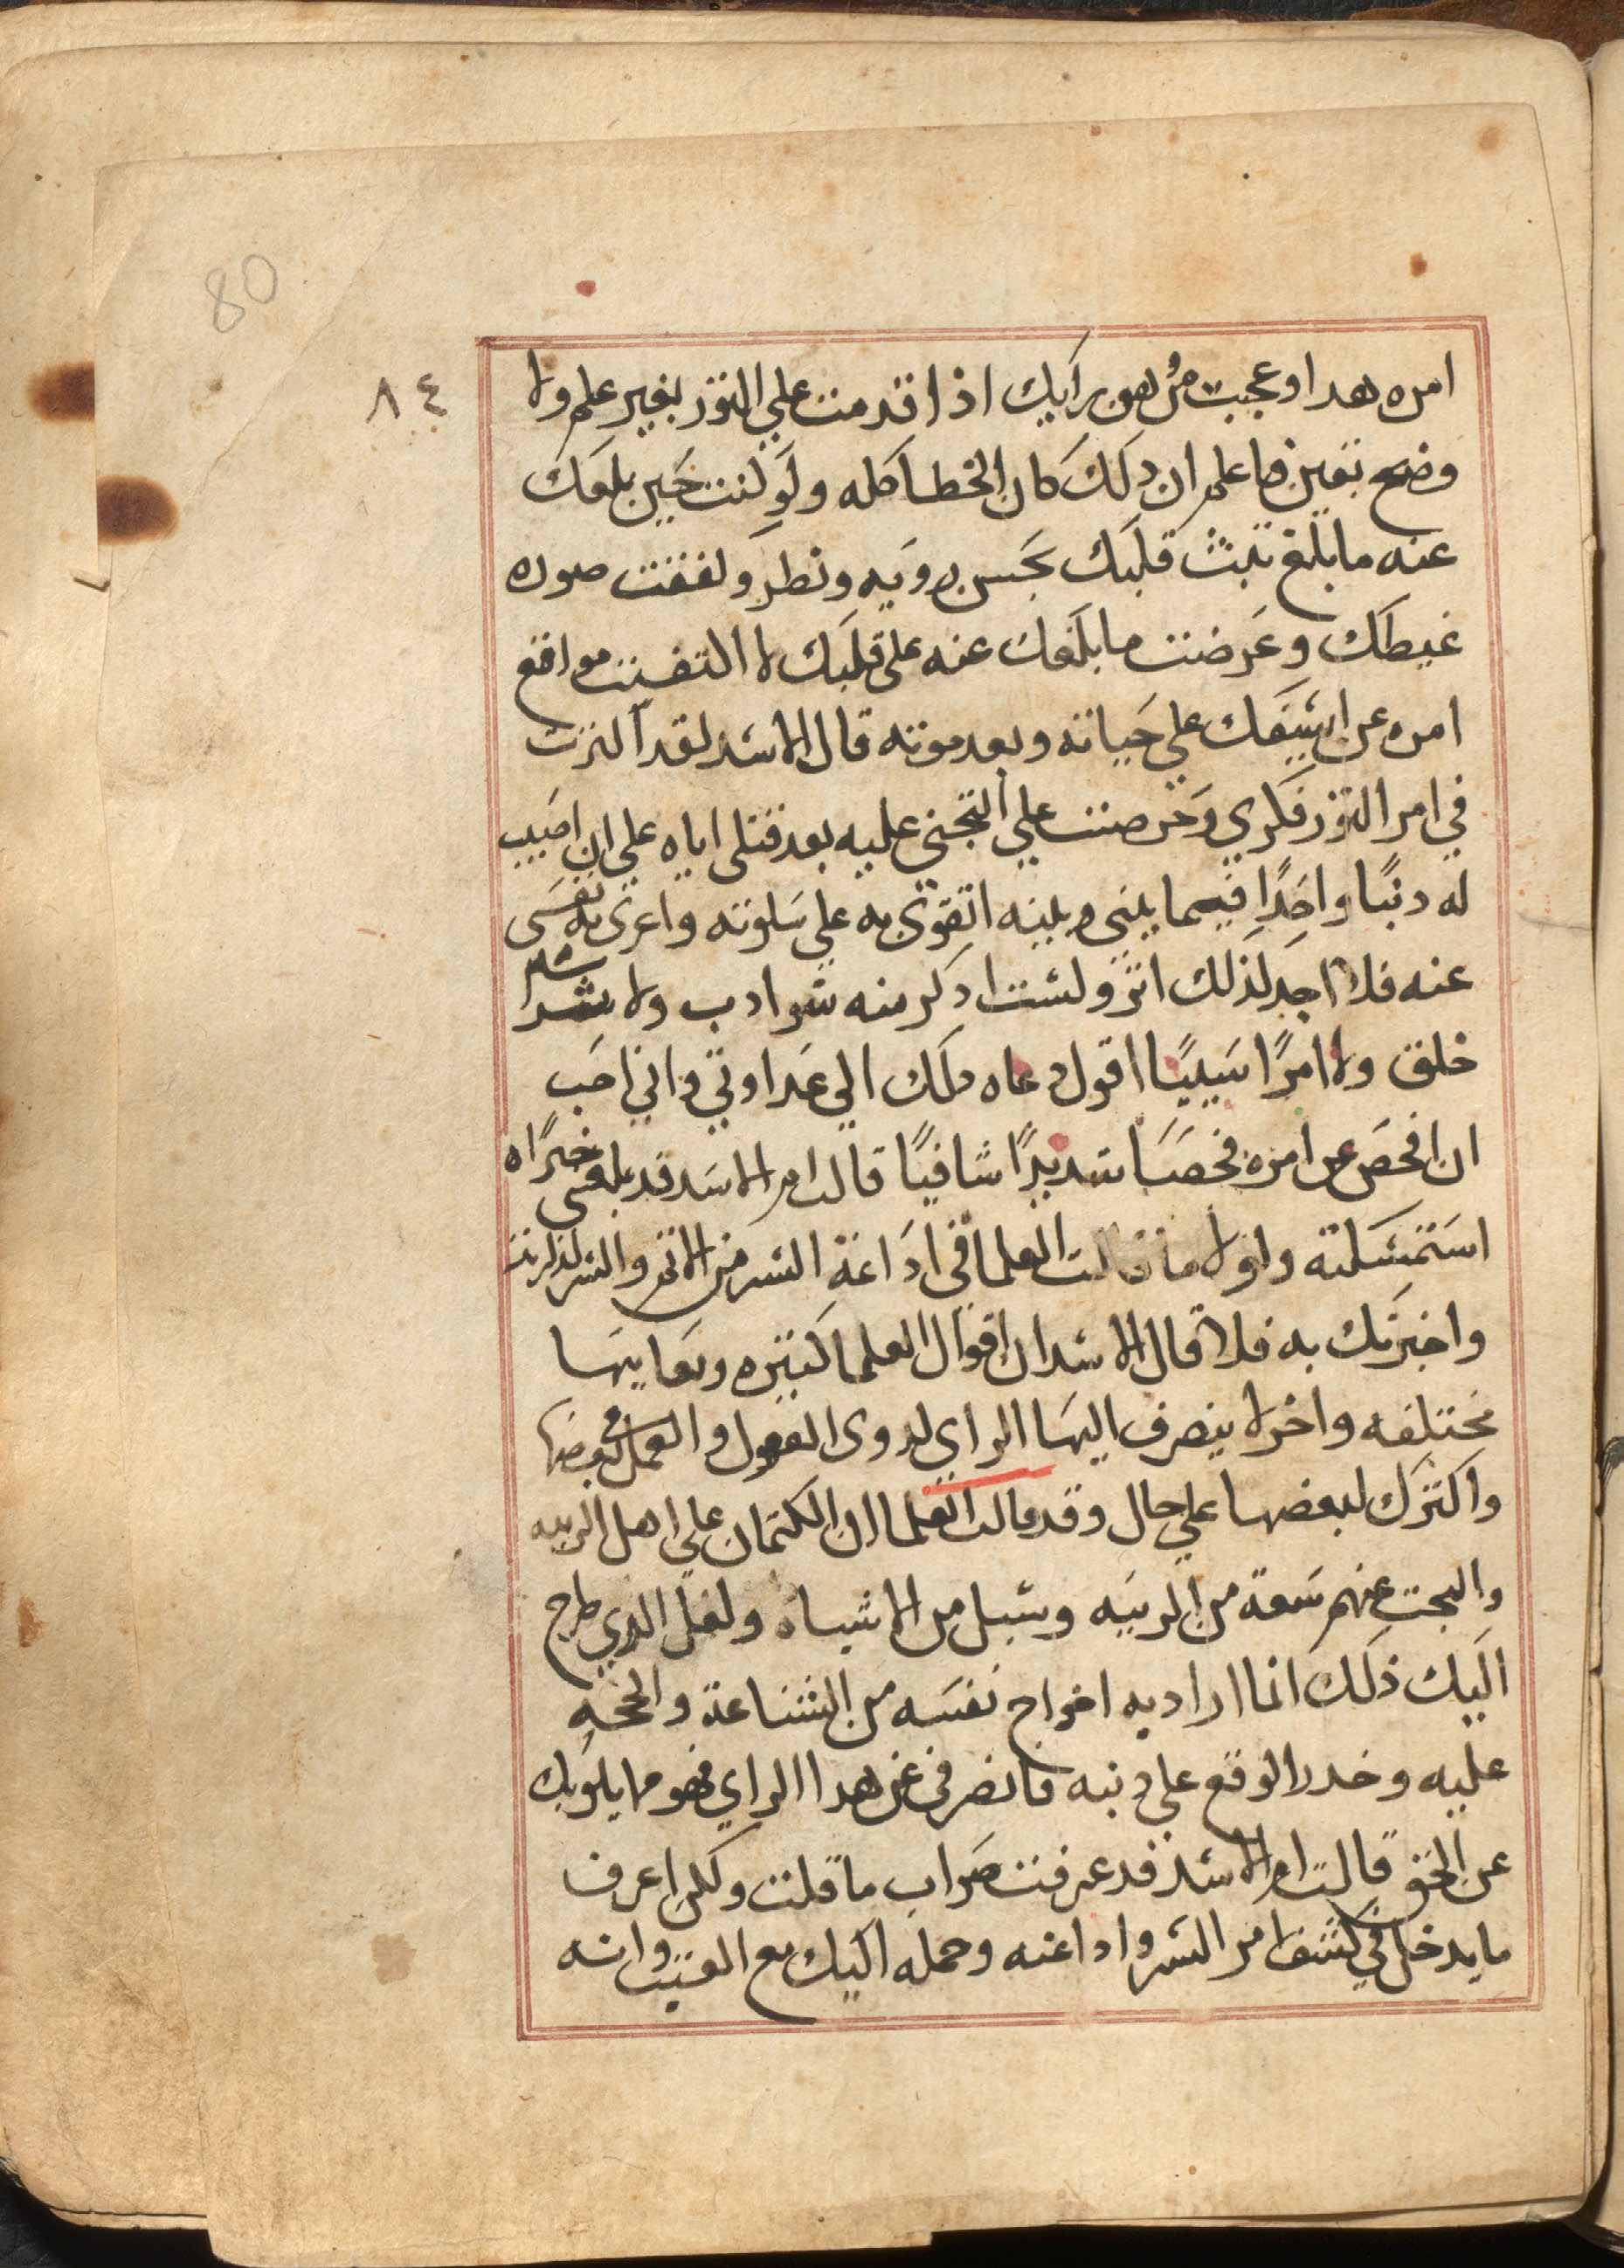 80
٨٤
امره هدا وعجبت من هون رايك اذ اقدمت علي الثور بغير علم ولا
وضح يقين فاعلم ان دلك كان الخطا كله ولو كنت حين بلغك
عنه ما بلغ تثبت قلبك بحسن رويه ونطر وكففت صوره
غيطك وعرضت ما بلغك عنه على قلبك لا التفتت مواقع
امره عن اشيفك علي حياته وبعد موته قال الاسد لقد اكثرت
في امر الثور فكري وحرصت علي التجني عليه بعد قتلى اياه علي ان اصيب
له دنبًا واحدًا فيما بيني وبينه اتقوى به علي سلوته واعزى به نفسى
عنه فلا اجد لذلك اثر ولست ادكر منه سو ادب ولا شر
خلق ولا امرًا سييًا اقول دعاه دلك الي عداوتي واني احب
ان افحص عن امره فحصا شديدًا شافيًا قالت ام الاسد قد بلغنى خبرًا ه
استمسكته ولولا ما قالت العلما في اداعة السر من الاثم والشر لذكرته
واخبرتك به فلا قال الاسد ان اقوال العلما كتيره ومعاينها
مختلفه واخرلا ينصرف اليها الراي لدوى العقول والعمل في بعضها
واكترك لبعضها علي حال وقد قالت العلما ان الكتمان علي اهل الريبه
والبحت عنهم سعة من الريبه وسبل من الاشياه ولعل الدي طرح
اليك ذلك انما اراد به اخراج نفسه من الشناعة والحجه
عليه وحدر الوقع علي دنبه فانصرفى عن هدا الراي فهو ما يلويك
عن الحق قالت ام الاسد قد عرفت صواب ما قلت ولكن اعرف
ما يدخل في كشف امر السر واداعته وحمله اليك مع الغيب وانه